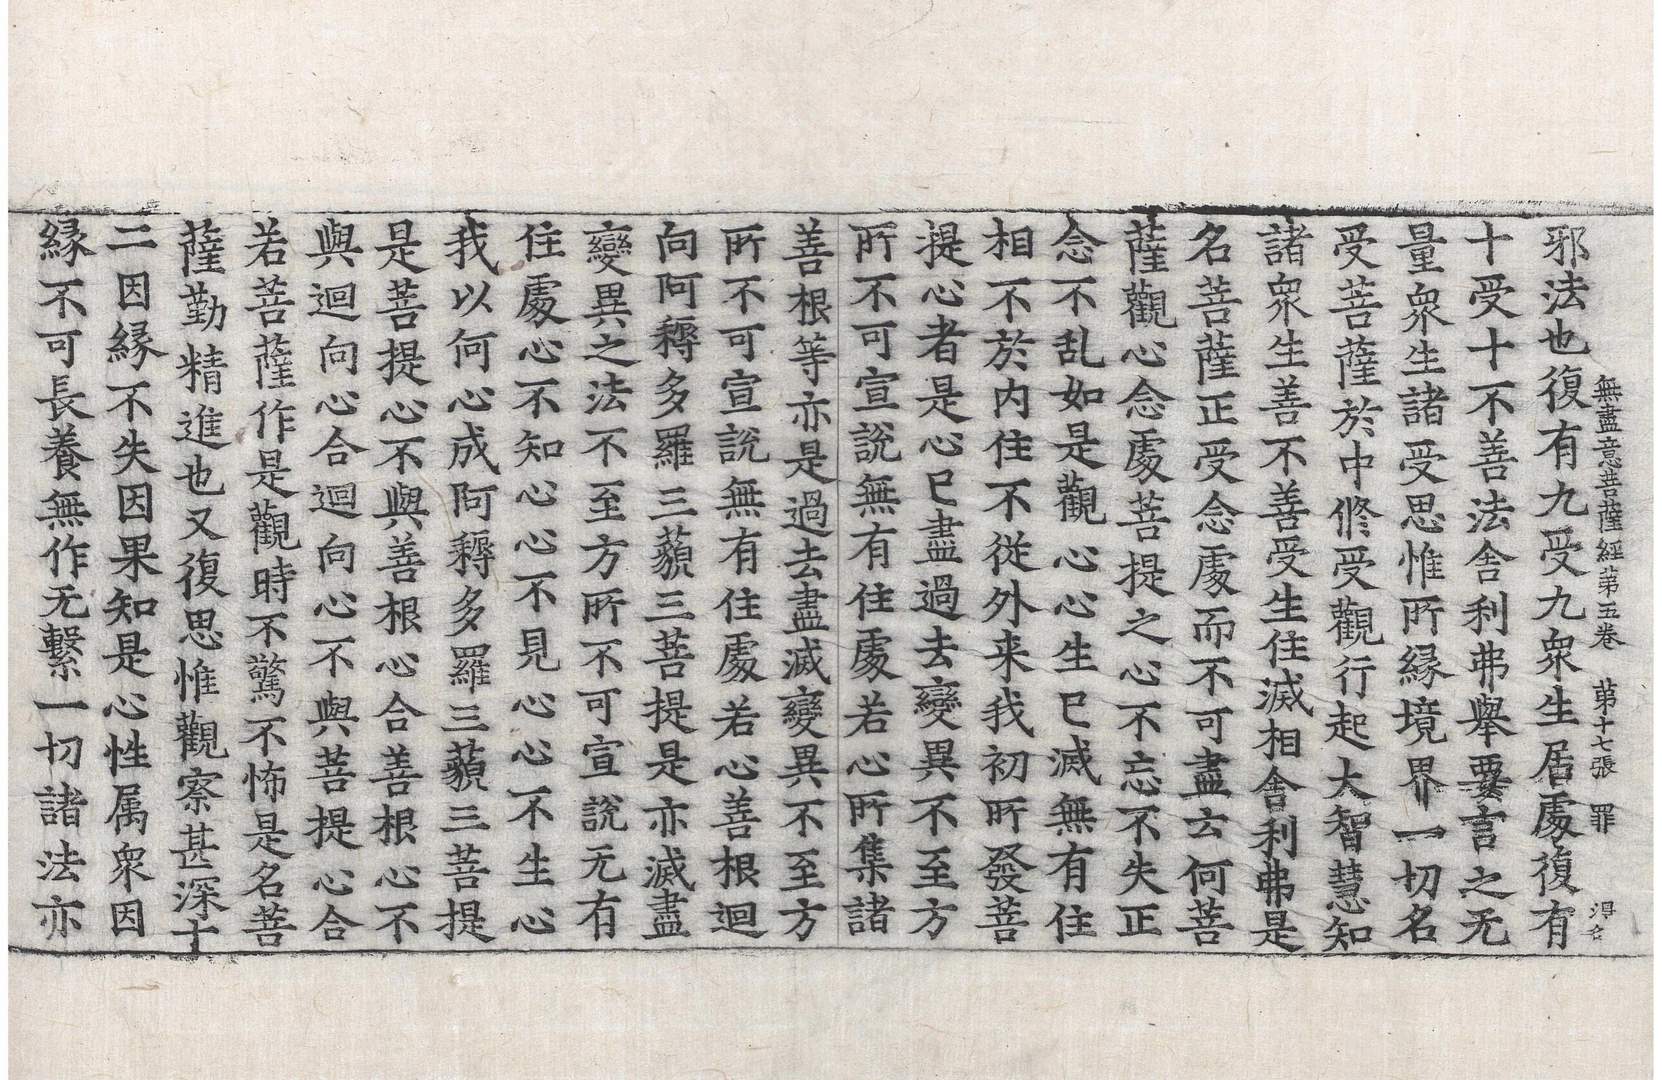 無盡意菩薩經苐五卷 苐十七張 罪 淂名
邪法也復有九受九衆生居處復有
十受十不善法舍利弗舉要言之无
量衆生諸受思惟所縁境界一切名
受菩薩於中修受觀行起大智慧知
諸衆生善不善受生住滅相舍利弗是
名菩薩正受念處而不可盡云何菩
薩觀心念處菩提之心不忘不失正
念不乱如是觀心心生已滅無有住
相不於内住不從外来我初所發菩
提心者是心已盡過去變異不至方
所不可宣說無有住處若心所集諸
善根等亦是過去盡滅變異不至方
所不可宣說無有住處若心善根迴
向阿耨多羅三藐三菩提是亦滅盡
變異之法不至方所不可宣說无有
住處心不知心心不見心心不生心
我以何心成阿耨多羅三藐三菩提
是菩提心不與善根心合善根心不
與迴向心合迴向心不與菩提心合
若菩薩作是觀時不驚不怖是名菩
薩勤精進也又復思惟觀察甚深十
二因縁不失因果知是心性属衆因
縁不可長養無作无繋一切諸法亦